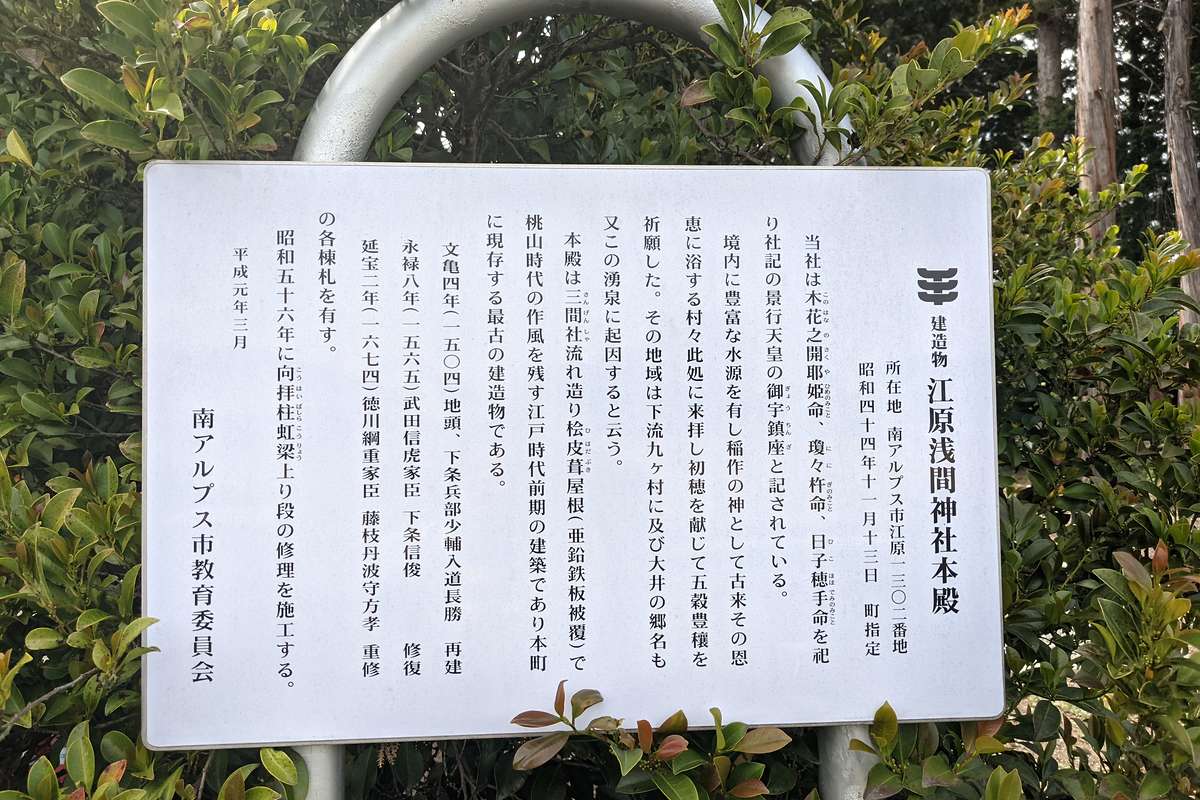 建造物 江原浅間神社本殿
所在地 南アルプス市江原一三〇二番地
昭和四十四年十一月十三日 町指定
当社は木花之開耶姫命、瓊々杵命、日子穂手命を祀
り社記の景行天皇の御宇鎮座と記されている。
境内に豊富な水源を有し稲作の神として古来その恩
恵に浴する村々此処に来拝し初穂を献じて五穀豊穰を
祈願した。その地域は下流九ヶ村に及び大井の郷名も
又この湧泉に起因すると云う。
本殿は三間社流れ造り桧皮葺屋根(亜鉛鉄板被覆)で
桃山時代の作風を残す江戸時代前期の建築であり本町
に現存する最古の建造物である。
文亀四年(一五〇四)地頭、下条兵部少輔入道長勝 再建
永禄八年(一五六五)武田信虎家臣 下条信俊 修復
延宝二年(一六七四)徳川綱重家臣 藤枝丹波守方孝 重修
の各棟札を有す。
昭和五十六年に向拝柱虹梁上り段の修理を施工する。
平成元年三月
南アルプス市教育委員会